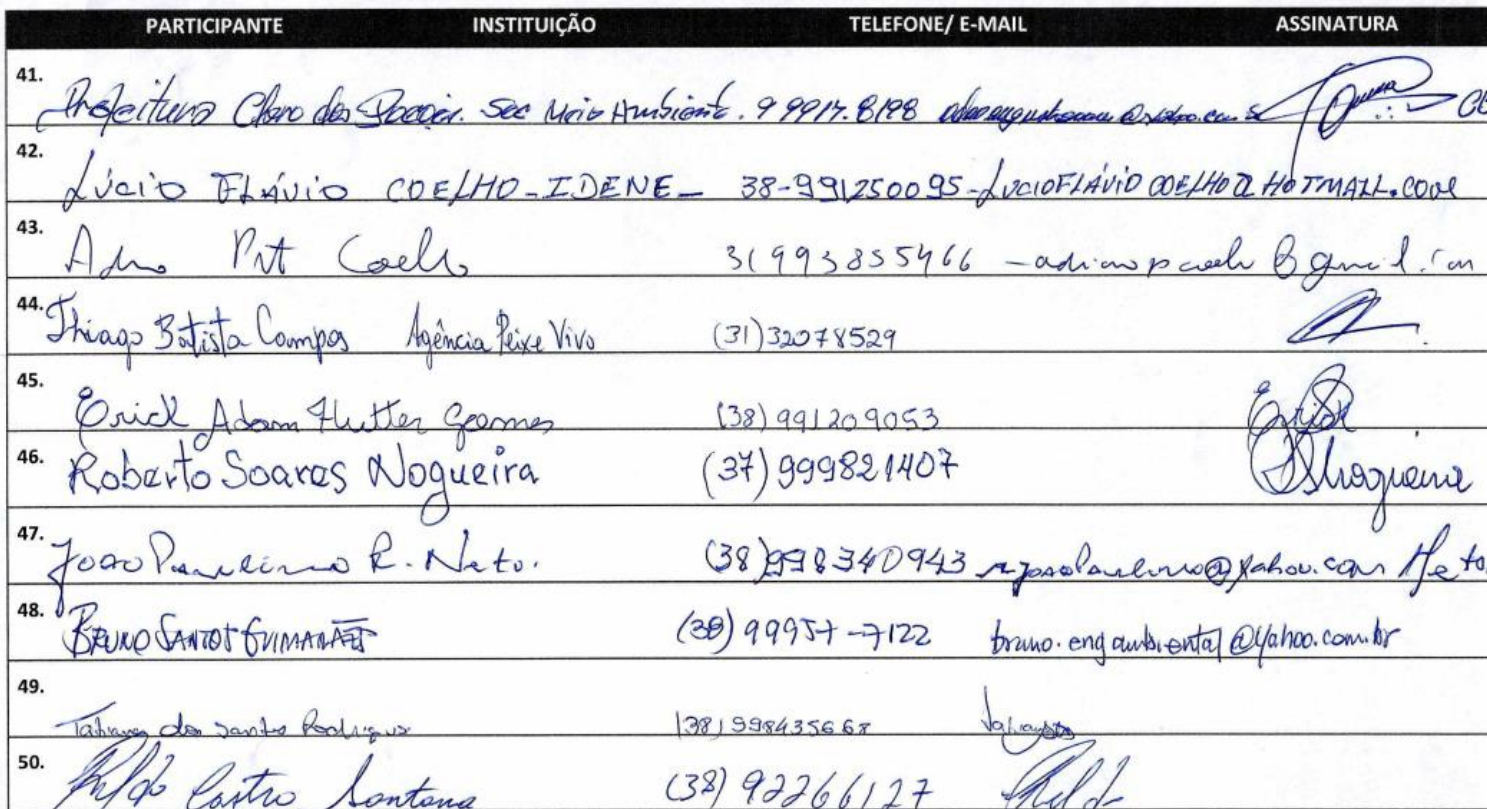 PARTICIPANTE INSTITUIÇÃO TELEFONE/ E-MAIL ASSINATURA
41. Prefeitura Claro dos Poções. Sec Meio Ambiente. 9 9917.8198
42. LÚCIO FLÁVIO COELHO - IDENE - 38-991250095 - LUCIOFLÁVIO COELHO@HOTMAIL.COM
43. Coelho 31993855466
44. Thiago Batista Campos Agência Peixe Vivo (31)32078529
45. Erick Adam Hutter Gomes (38)991209053 Erick
46. Roberto Soares Nogueira (37)999821407
47. João Paulino R. Neto. (38)998340943 Neto
48. BRUNO SANTOS GUIMARÃES (38) 99957-7122 bruno.engambiental@yahoo.com.br
49. Tatiana dos Santos Rodrigues (38)998435668
50. Castro Santana (38) 92266127